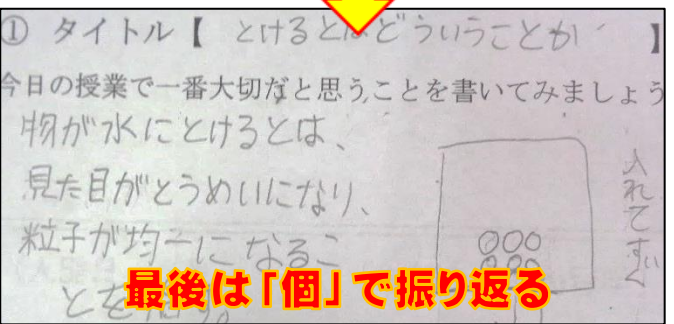 ① タイトル【 とけるとはどういうことか 】
今日の授業で一番大切だと思うことを書いてみましょう
物が水にとけるとは、
見た目がとうめいになり、
粒子が均一になるこ
とを
入れてすぐ
最後は「個」で振り返る